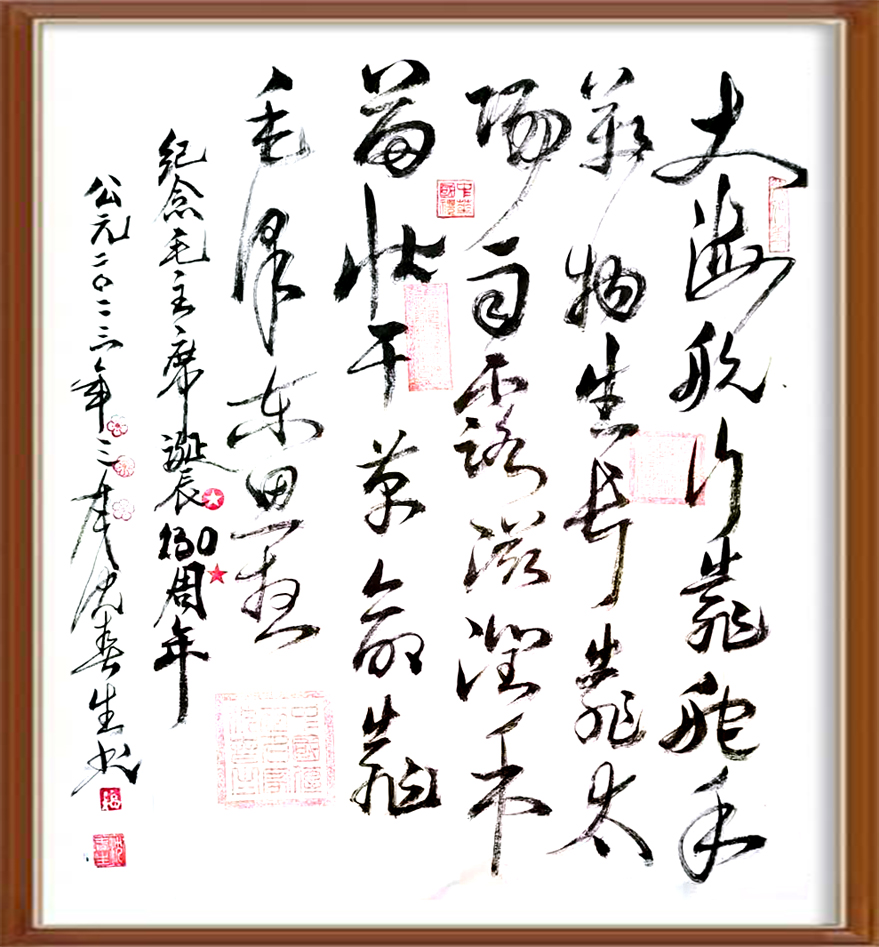 大海航行靠舵手
萬物生長靠太
陽雨露滋潤禾
苗壯干革命靠
毛泽东思想
纪念毛主席誕辰130周年
公元二〇二三年三沈春生书